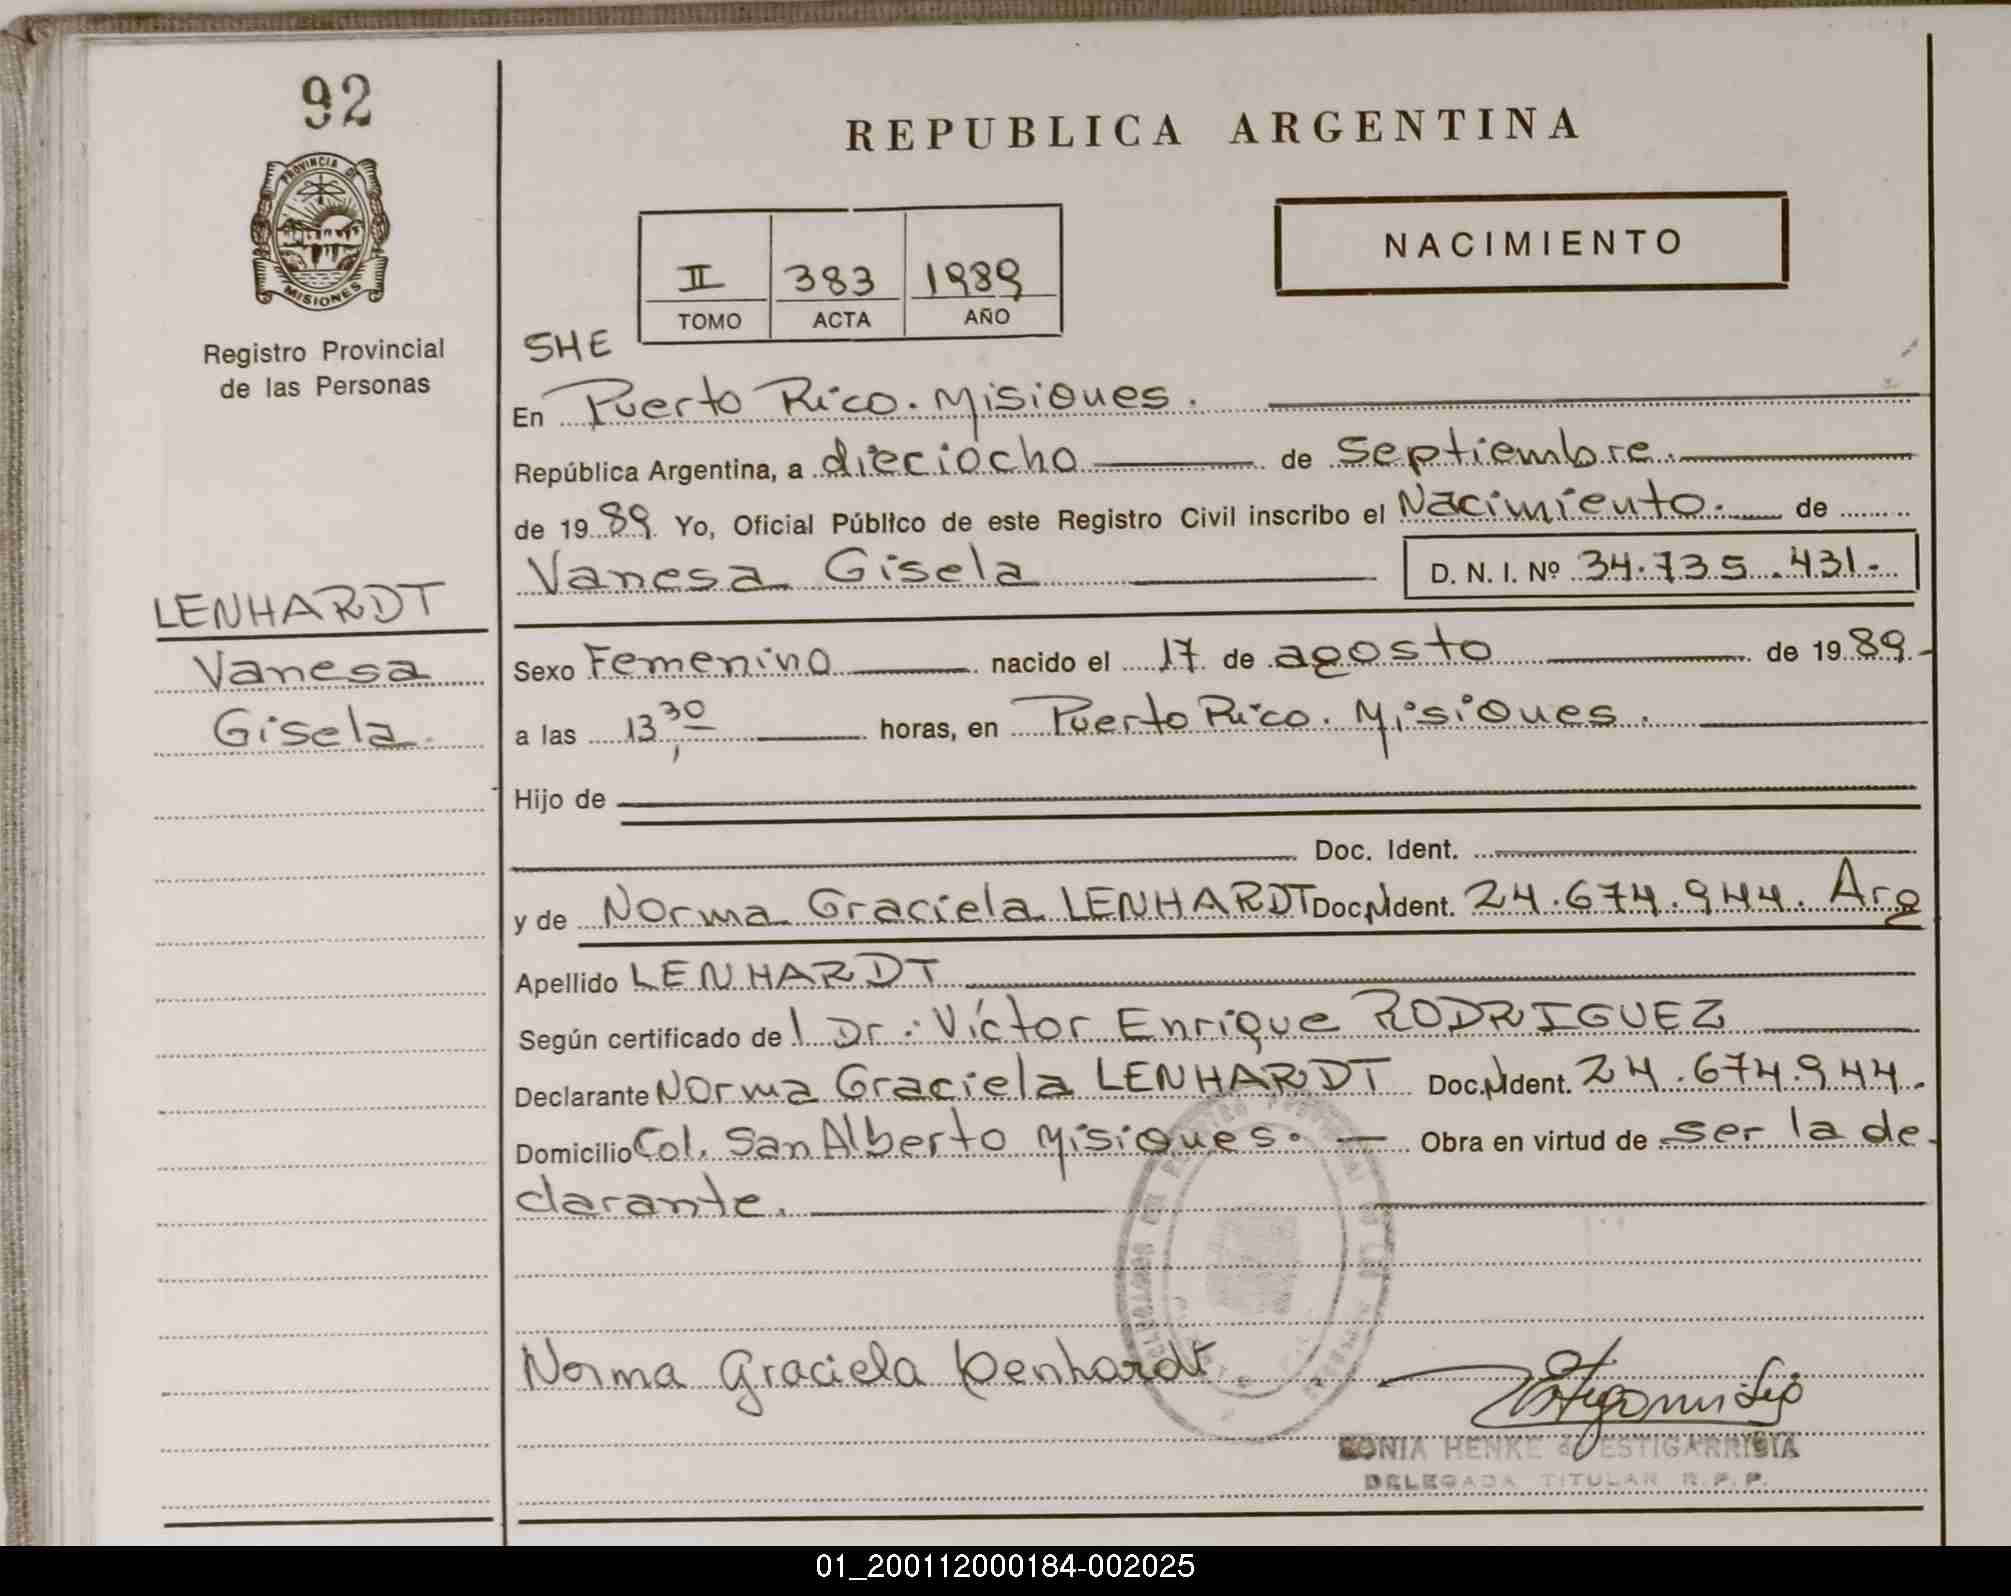 92
PROVINCIA DE
MISIONES
Registro Provincial
de las Personas
LENHARDT
Vanesa
Gisela.
REPUBLICA ARGENTINA
NACIMIENTO
II 383 1989
TOMO ACTA AÑO
SHE
En Puerto Rico. Misiones.
República Argentina, a dieciocho de septiembre.
de 1989. Yo, Oficial Público de este Registro Civil inscribo el Nacimiento. de
Vanesa Gisela D. N. I. Nº 34.735.431.-
Sexo Femenino nacido el 17 de agosto de 1989.-
a las 13,30 horas, en Puerto Rico. Misiones.
Hijo de
Doc. Ident.
y de Norma Graciela LENHARDT Doc. N Ident. 24.674.944. Arg
Apellido LENHARDT
Según certificado de l Dr.: Víctor Enrique RODRIGUEZ
Declarante Norma Graciela LENHARDT Doc. N Ident. 24.674.944.
Domicilio Col. San Alberto Misiones. — Obra en virtud de ser la de-
clarante.
Norma Graciela Lenhardt
SONIA HENKE de ESTIGARRIBIA
DELEGADA TITULAR R. P. P.
01_200112000184-002025